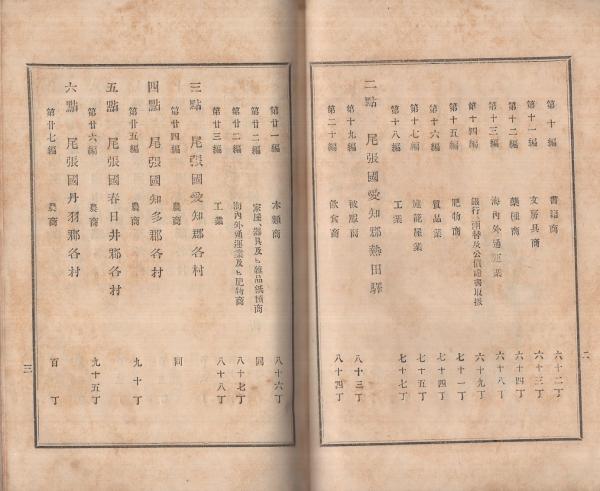 第十編 書籍商 六十二丁
第十一編 文房具商 六十三丁
第十二編 藥種商 六十四丁
第十三編 海內外通運業 六十八丁
第十四編 銀行、兩替及公債證書取扱 六十九丁
第十五編 肥物商 七十一丁
第十六編 質品業 七十四丁
第十七編 旅籠屋業 七十五丁
第十八編 工業 七十七丁
二點 尾張國愛知郡熱田驛
第十九編 被服商 八十三丁
第二十編 飲食商 八十四丁
二
第廿一編 木類商 八十六丁
第廿二編 家屋、器具及ヒ雜品紙類商 同
第廿二編 海內外通運業及ヒ肥物商 八十七丁
第廿三編 工業 八十八丁
三點 尾張國愛知郡各村
第廿四編 農商 同
四點 尾張國知多郡各村
第廿五編 農商 九十丁
五點 尾張國春日井郡各村
第廿六編 農商 九十五丁
六點 尾張國丹羽郡各村
第廿七編 農商 百丁
三